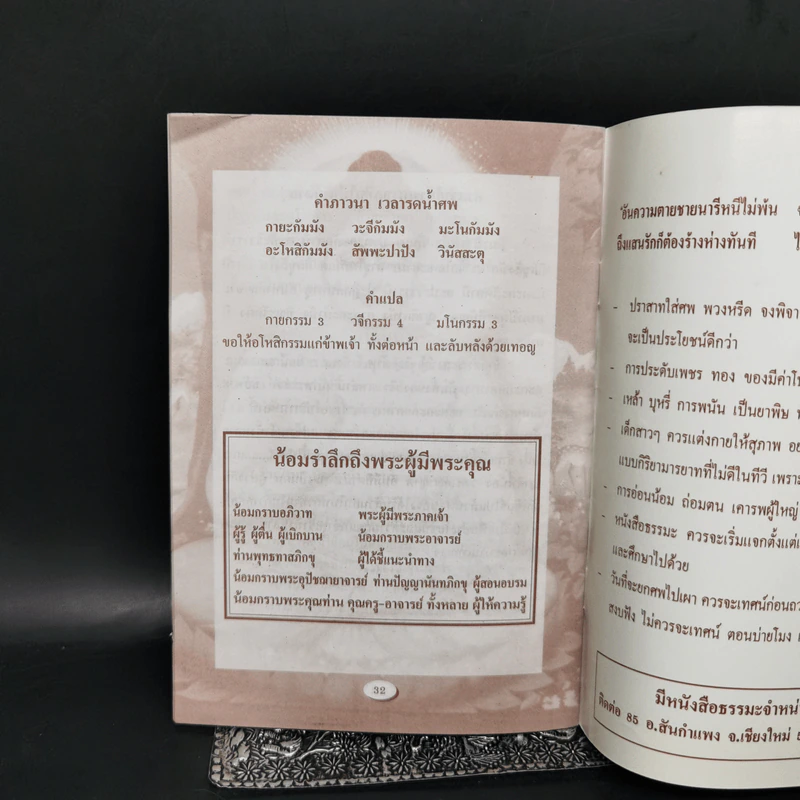 คำภาวนา เวลารดน้ำศพ
กายะกัมมัง วะจีกัมมัง มะโนกัมมัง
อะโหสิกัมมัง สัพพะปาปัง วินัสสะตุ
คำแปล
กายกรรม 3 วจีกรรม 4 มโนกรรม 3
ขอให้อโหสิกรรมแก่ข้าพเจ้า ทั้งต่อหน้า และลับหลังด้วยเทอญ
น้อมรำลึกถึงพระผู้มีพระคุณ
น้อมกราบอภิวาท พระผู้มีพระภาคเจ้า
ผู้รู้ ผู้ตื่น ผู้เบิกบาน น้อมกราบพระอาจารย์
ท่านพุทธทาสภิกขุ ผู้ได้ชี้แนะนำทาง
น้อมกราบพระอุปัชฌายาจารย์ ท่านปัญญานันทภิกขุ ผู้สอนอบรม
น้อมกราบพระคุณท่าน คุณครู-อาจารย์ ทั้งหลาย ผู้ให้ความรู้
32
"อันความตายชายนารีหนีไม่พ้น
ถึงแสนรักก็ต้องร้างห่างทันที
- ปราสาทใส่ศพ พวงหรีด จงพิจา
จะเป็นประโยชน์ดีกว่า
- การประดับเพชร ทอง ของมีค่าไป
- เหล้า บุหรี่ การพนัน เป็นยาพิษ
- เด็กสาวๆ ควรแต่งกายให้สุภาพ อย
แบบกิริยามารยาทที่ไม่ดีในทีวี เพราะ
- การอ่อนน้อม ถ่อมตน เคารพผู้ใหญ่
- หนังสือธรรมะ ควรจะเริ่มแจกตั้งแต่
และศึกษาไปด้วย
- วันที่จะยกศพไปเผา ควรจะเทศน์ก่อนถว
สงบฟัง ไม่ควรจะเทศน์ ตอนบ่ายโมง
มีหนังสือธรรมะจำหน่
ติดต่อ 85 อ.สันกำแพง จ.เชียงใหม่